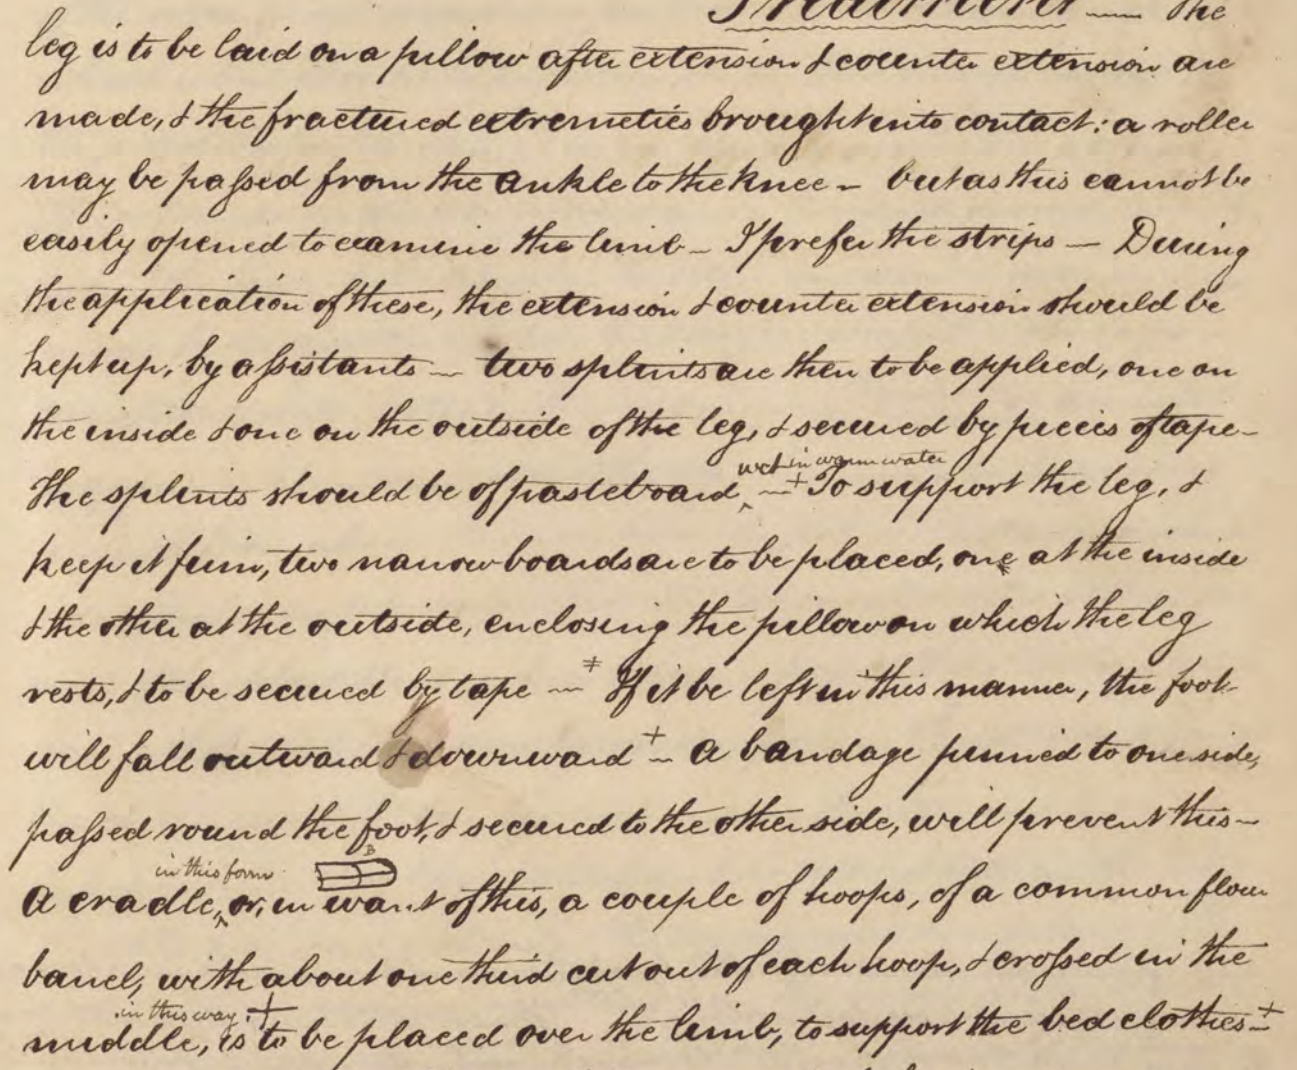 Treatment — The
leg is to be laid on a pillow after extension & counter extension are
made, & the fractured extremeties brought into contact: a roller
may be passed from the ankle to the knee – but as this cannot be
easily opened to examine the limb – I prefer the strips — During
the application of these, the extension & counter extension should be
kept up, by assistants — two splints are then to be applied, one on
the inside & one on the outside of the leg, & secured by pieces of tape –
wet in warm water
The splints should be of pasteboard, ^ ~ + To support the leg, &
keep it firm, two narrow boards are to be placed, one at the inside
& the other at the outside, enclosing the pillow on which the leg
rests, & to be secured by tape ~ ≠ If it be left in this manner, the foot
will fall outward & downward + ~ A bandage pinned to one side,
passed round the foot, & secured to the other side, will prevent this –
in this form B
A cradle, ^ or, in want of this, a couple of hoops, of a common flour
barrel, with about one third cut out of each hoop, & crossed in the
in this way. +
middle, is to be placed over the limb, to support the bed clothes – +